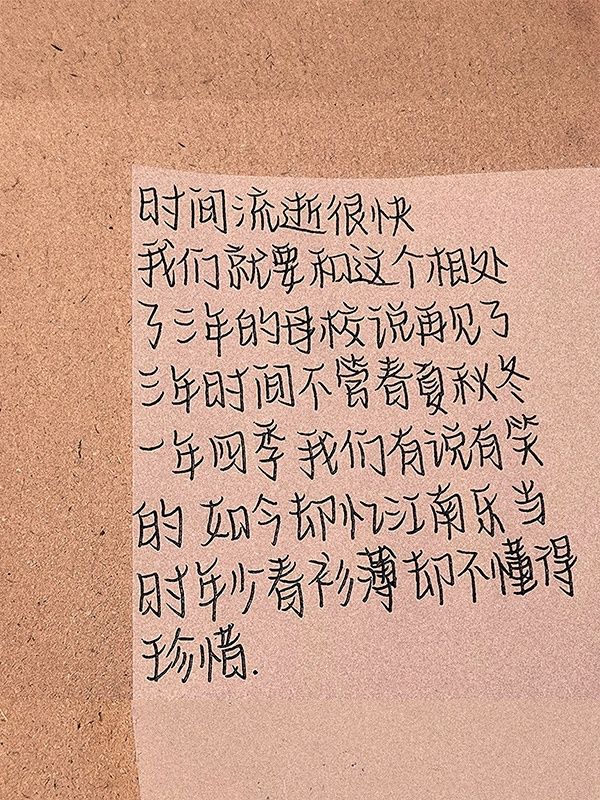 时间流逝很快
我们就要和这个相处
了三年的母校说再见了
三年时间不管春夏秋冬
一年四季我们有说有笑
的 如今却忆江南乐当
时年少春衫薄却不懂得
珍惜.